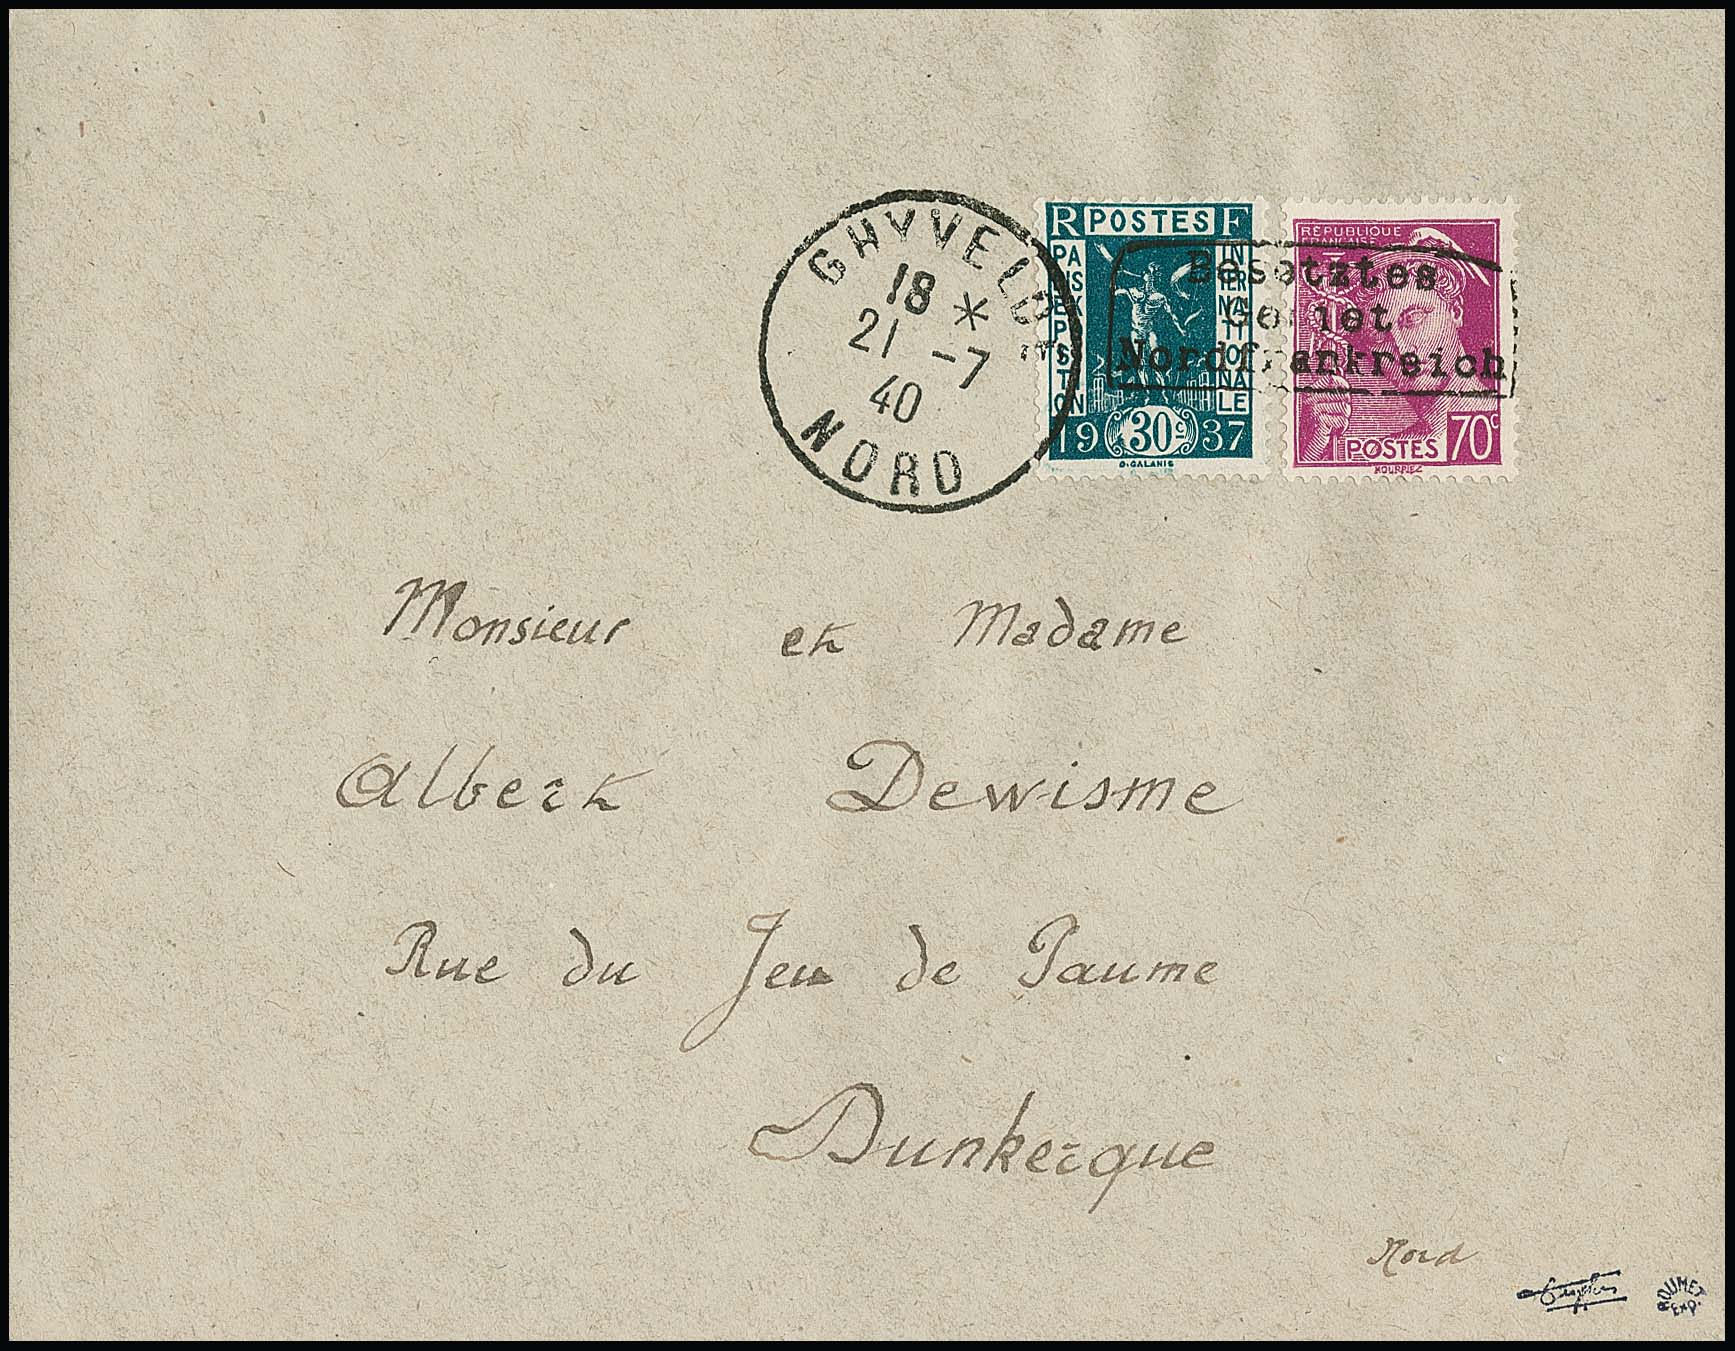 GHYVELDE
18 *
21 -7
40
NORD
R POSTES F
PARIS EXPOSITION
INTERNATIONALE
19 30c 37
D·GALANIS
RÉPUBLIQUE
FRANÇAISE
POSTES 70c
MOURRIEZ
Besetztes
Gebiet
Nordfrankreich
Monsieur et Madame
Albert Dewisme
Rue du Jeu de Paume
Dunkerque
Nord
ROUMET
EXP.